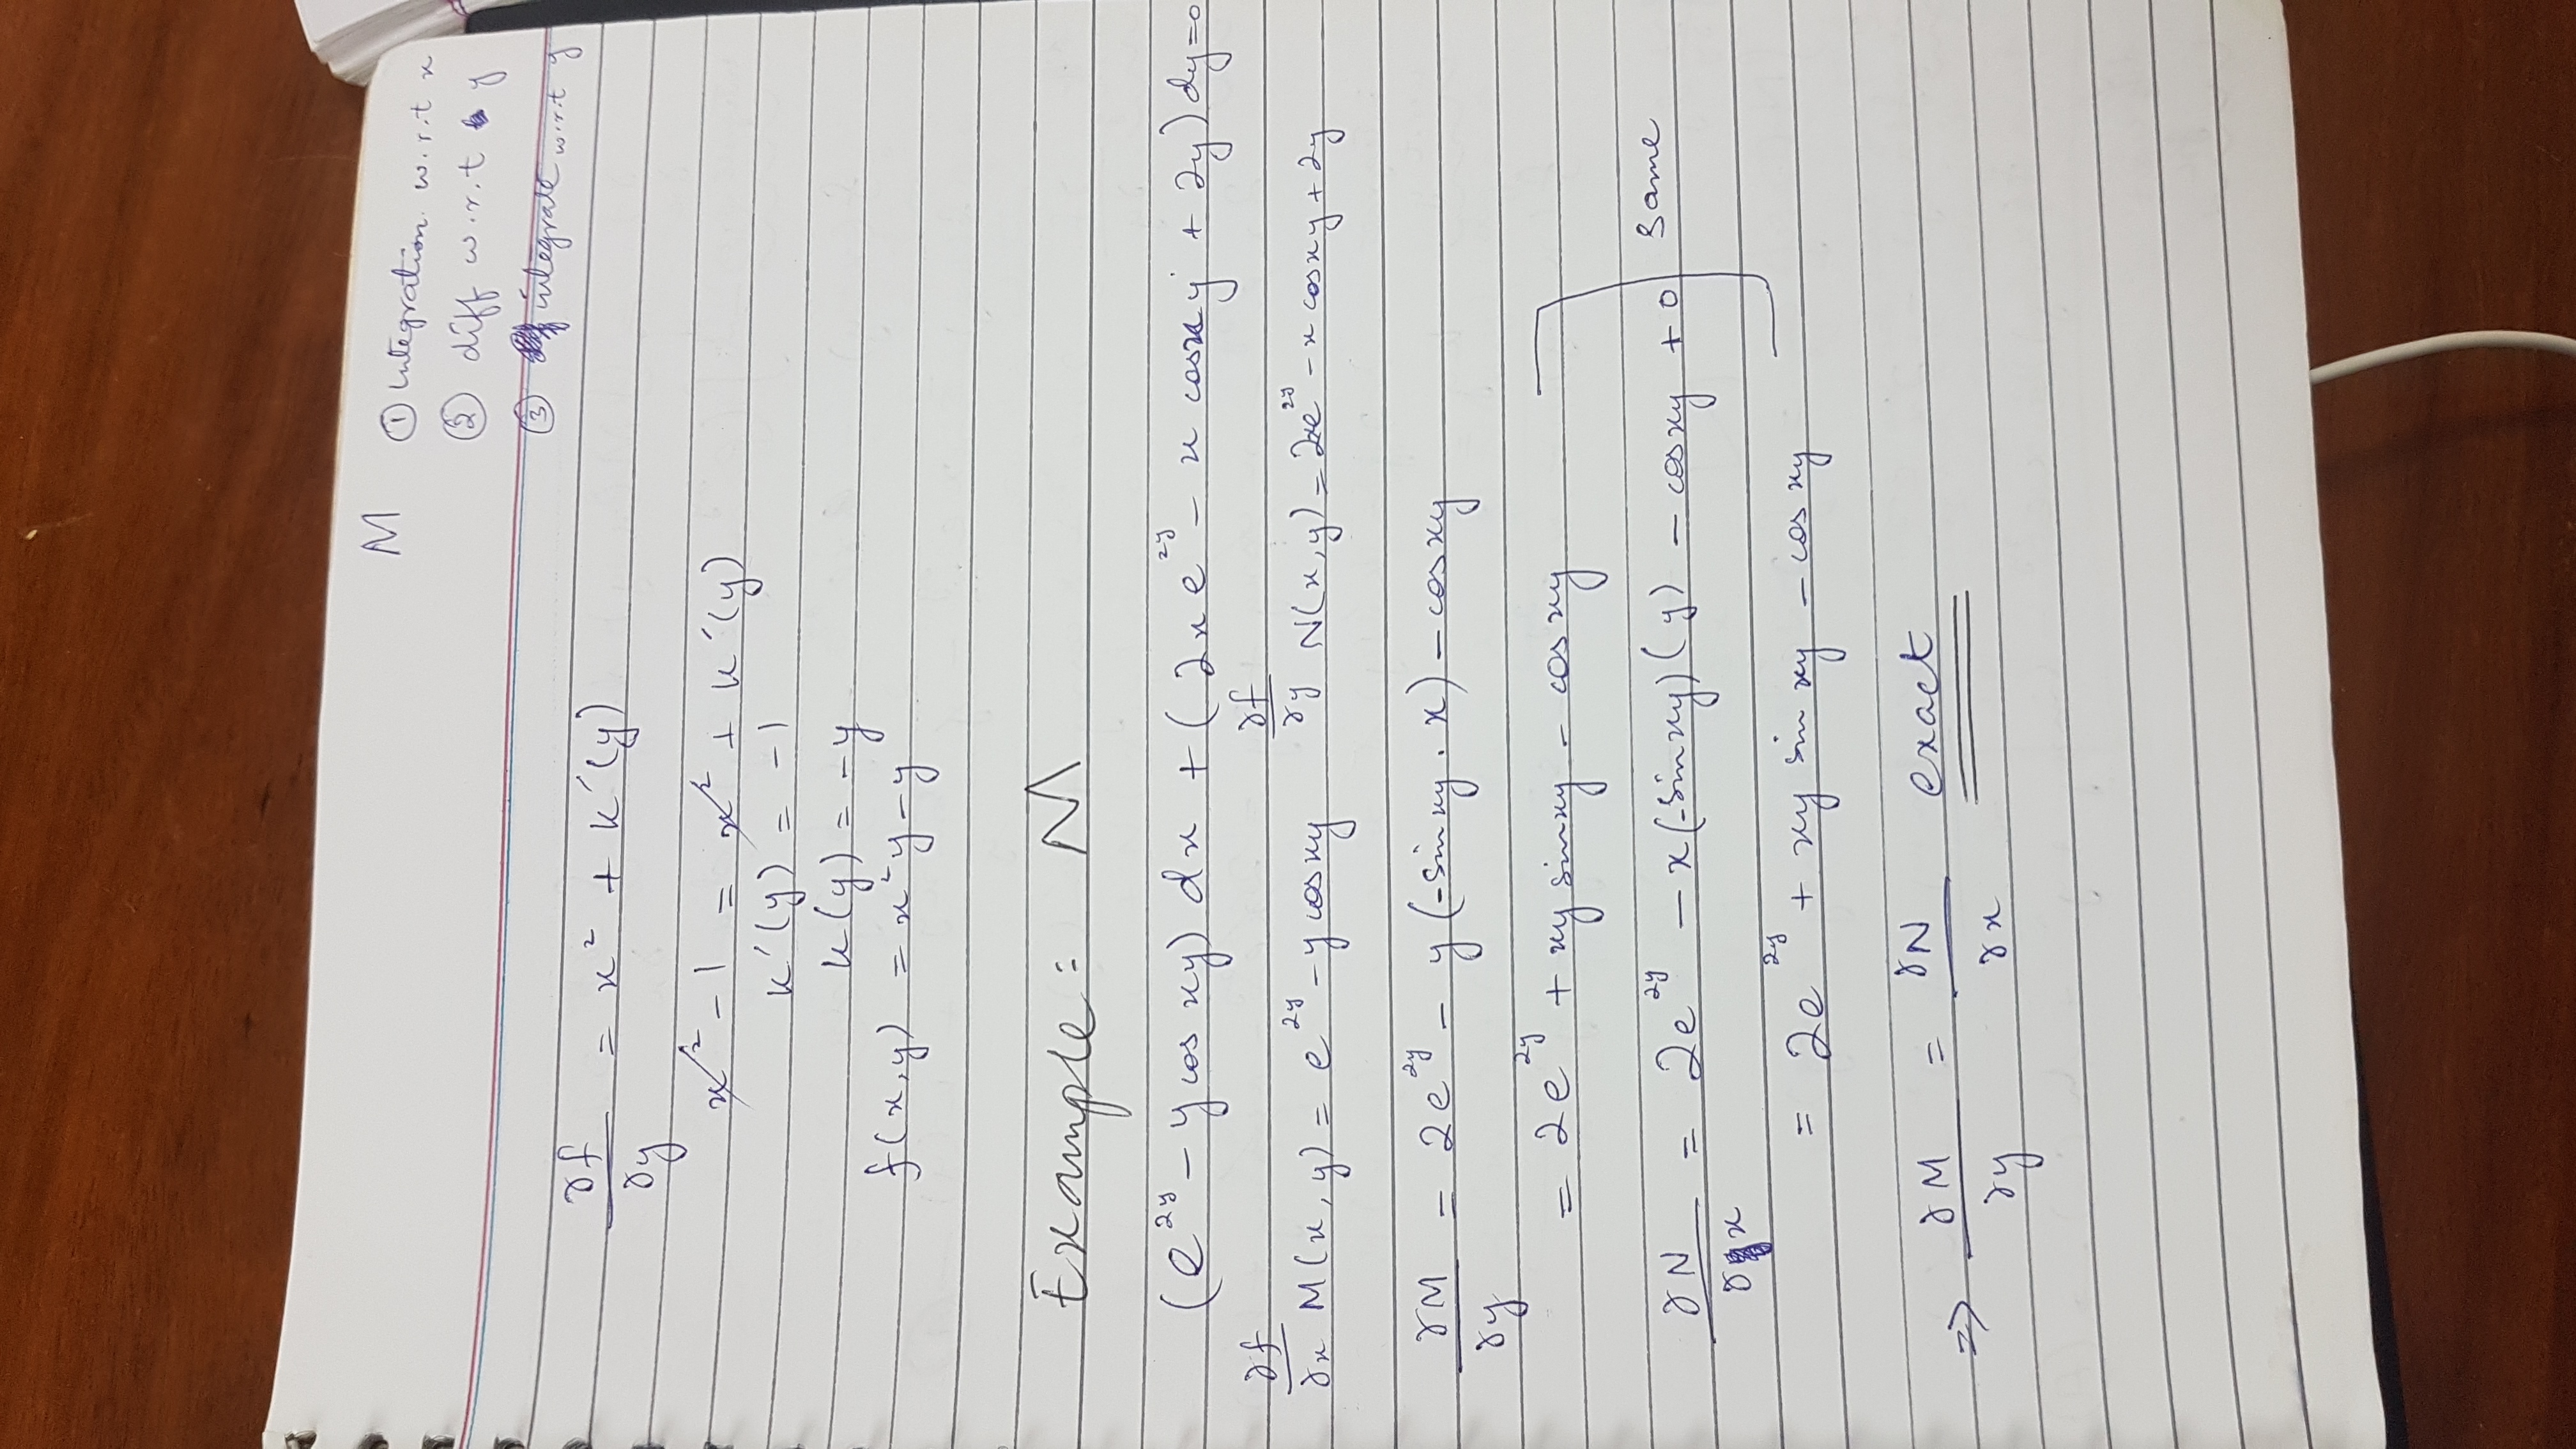 M
① Integration. w.r.t x
② diff w.r.t y
③ integrate w.r.t y
∂f/∂y = x² + k′(y)
x² - 1 = x² + k′(y)
k′(y) = -1
k(y) = -y
f(x,y) = x²y - y
Example: M
(e^{2y} - y cos xy) dx + (2xe^{2y} - x cosxy + 2y) dy=0
∂f/∂x M(x,y) = e^{2y} - y cosxy ∂f/∂y N(x,y) = 2xe^{2y} - x cosxy + 2y
∂M/∂y = 2e^{2y} - y(-sinxy . x) - cosxy
= 2e^{2y} + xy sinxy - cos xy
∂N/∂x = 2e^{2y} - x(-sinxy)(y) - cosxy + 0 Same
= 2e^{2y} + xy sin xy - cos xy
⇒ ∂M/∂y = ∂N/∂x exact